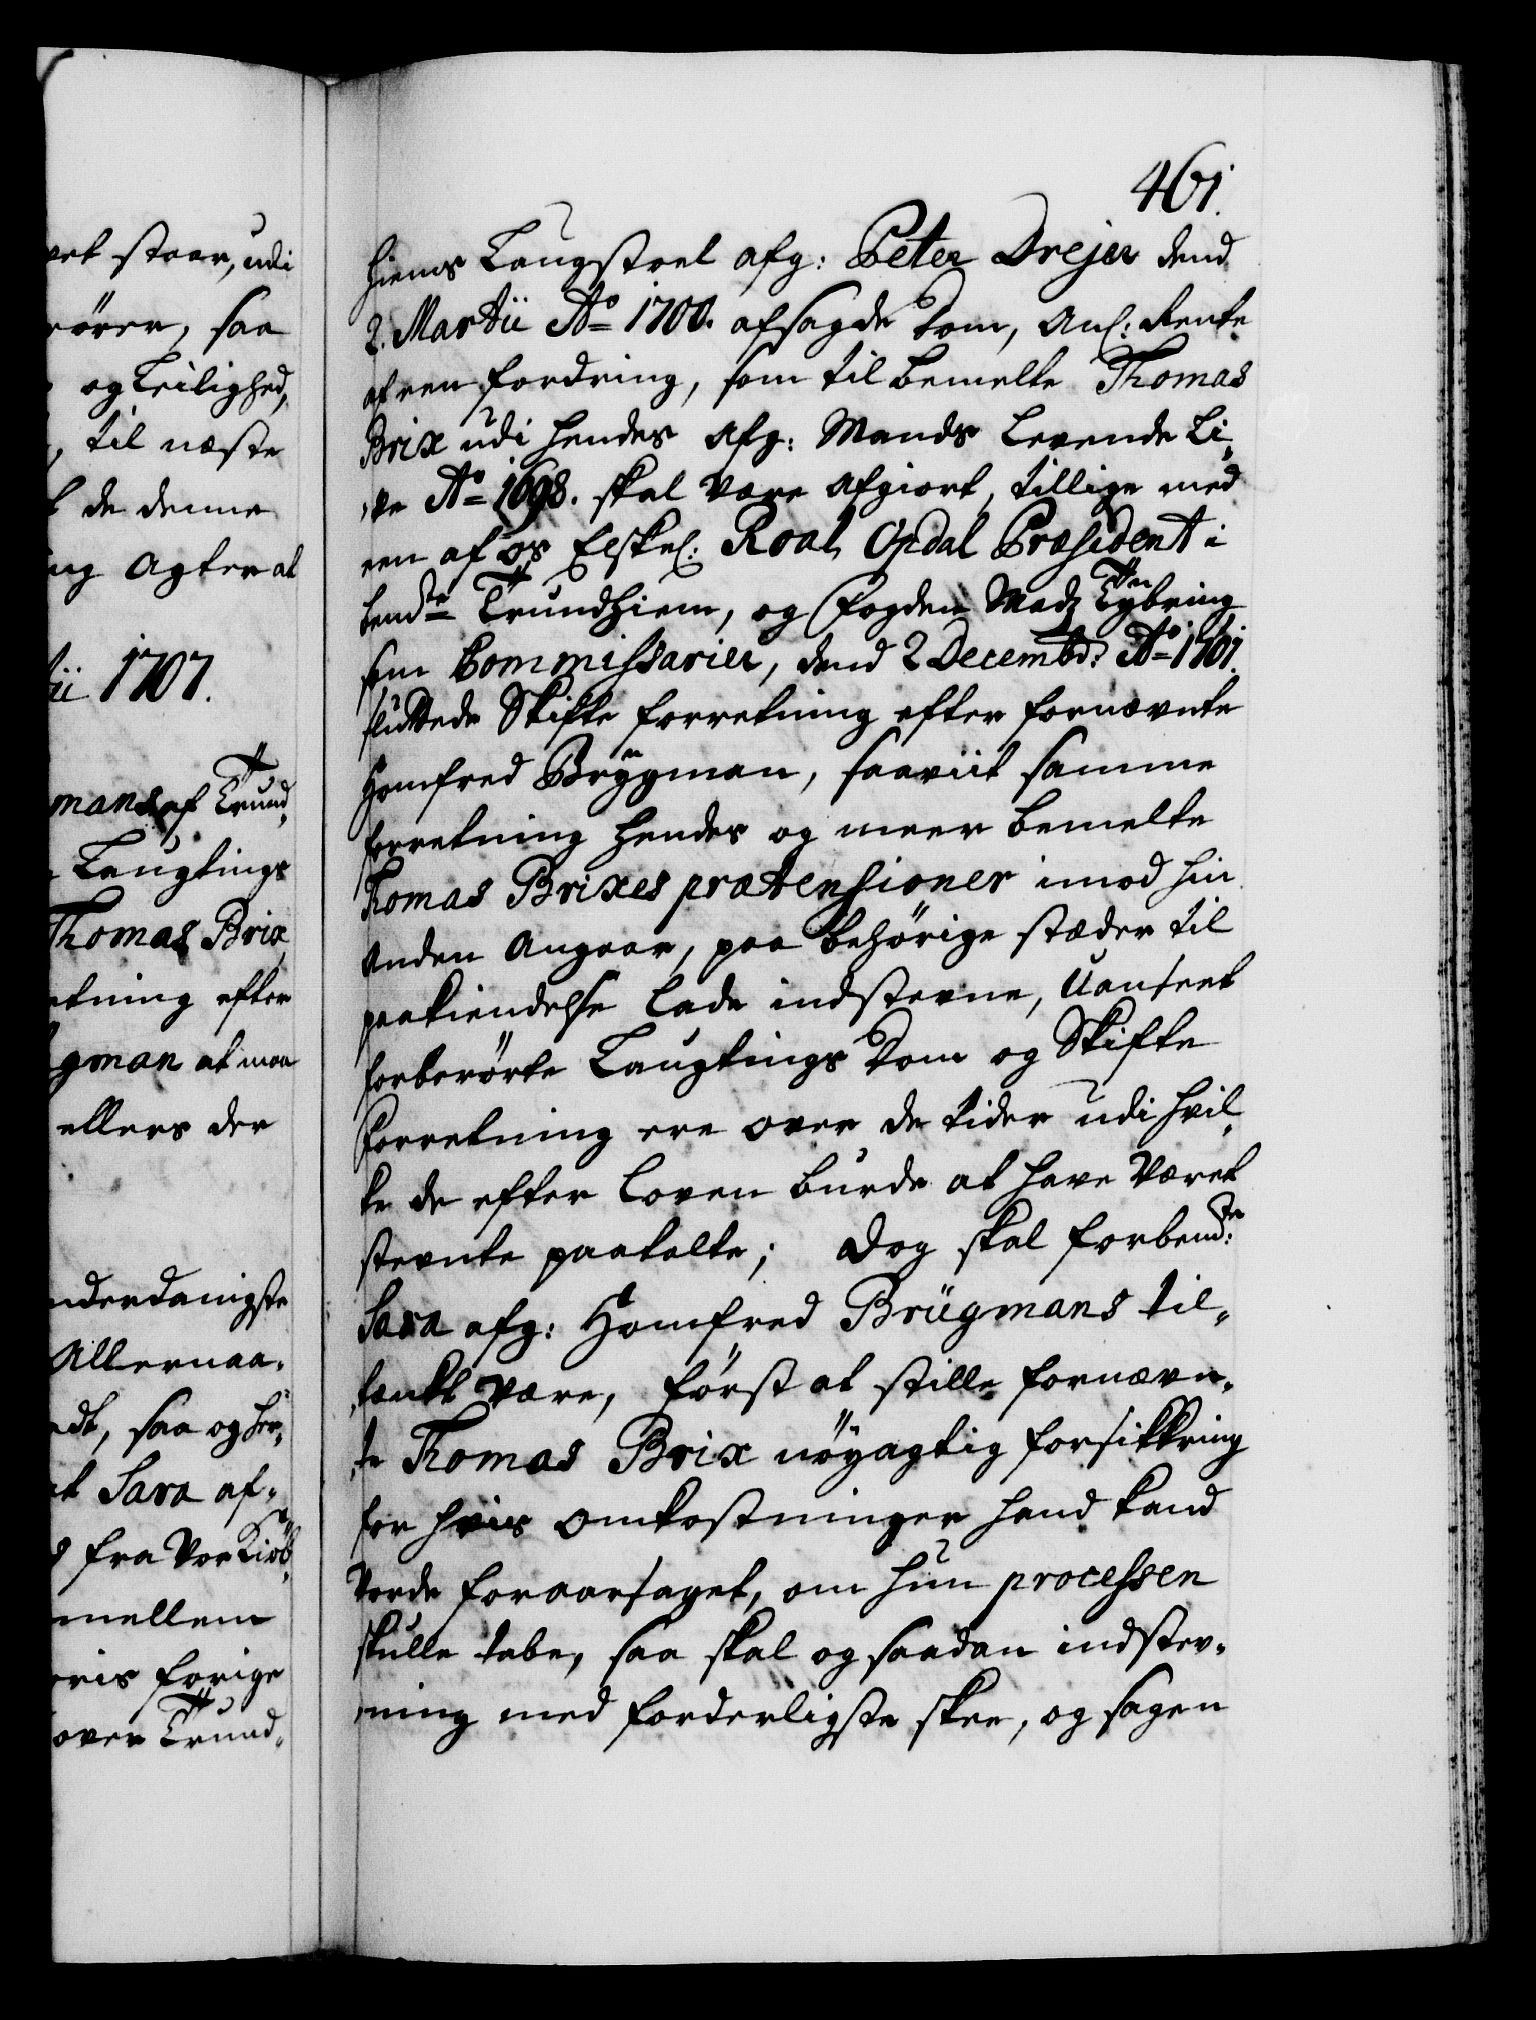 vet staar, udi
rører, saa
og Leilighed,
, til næste
t de denne
ng Agter at
ii 1707.
mans af Trund„
Laugtings
Thomas Brix
etning efter
gman at maa
ellers der
nderdanigste
Allernaa„
adt, saa og her„
at Sara af„
fra Vor Kiøb„
mellem
oris forige
over Trund„
461.
hiems Laugstoel afg: Peter Drejer dend
2. Martii Ao 1700. afsagde Dom, Anl: Rente
af een fordring, som til bemelte Thomas
Brix udi hendes Afg: Mands Levende Li„
„ve Ao 1698. skal være Afgiort, tillige med
een af os Elskel: Roal, Opdal Præsident i
bemdte Trundhiem, og Fogden Madz Tybring
som Commissarier, dend 2 Decembr: Ao 1701.
sluttede Skifte forretning efter fornævnte
Homfred Brÿgman, saaviit samme
forretning hendes og meer bemelte
Thomas Brixes prætensioner imod hin
Anden Angaar, paa behørige stæder til
paakiendelse lade indstevne, Uanseet
forberørte Laugtings Dom og Skifte
Forretning ere over de tider udi hvil„
ke de efter Loven burde at have været
stevnte paatalte; Dog skal forbemdte:
Sara afg: Homfred Brügmans til„
„tenkt være, først at stille fornævn„
„te Thomas Brix nøyagtig forsikkring
for hvis Omkostninger hand kand
vorde foraarsaget, om hun processen
skulle tabe, saa skal og saadan indstev„
„ning med forderligste skee, og sagen